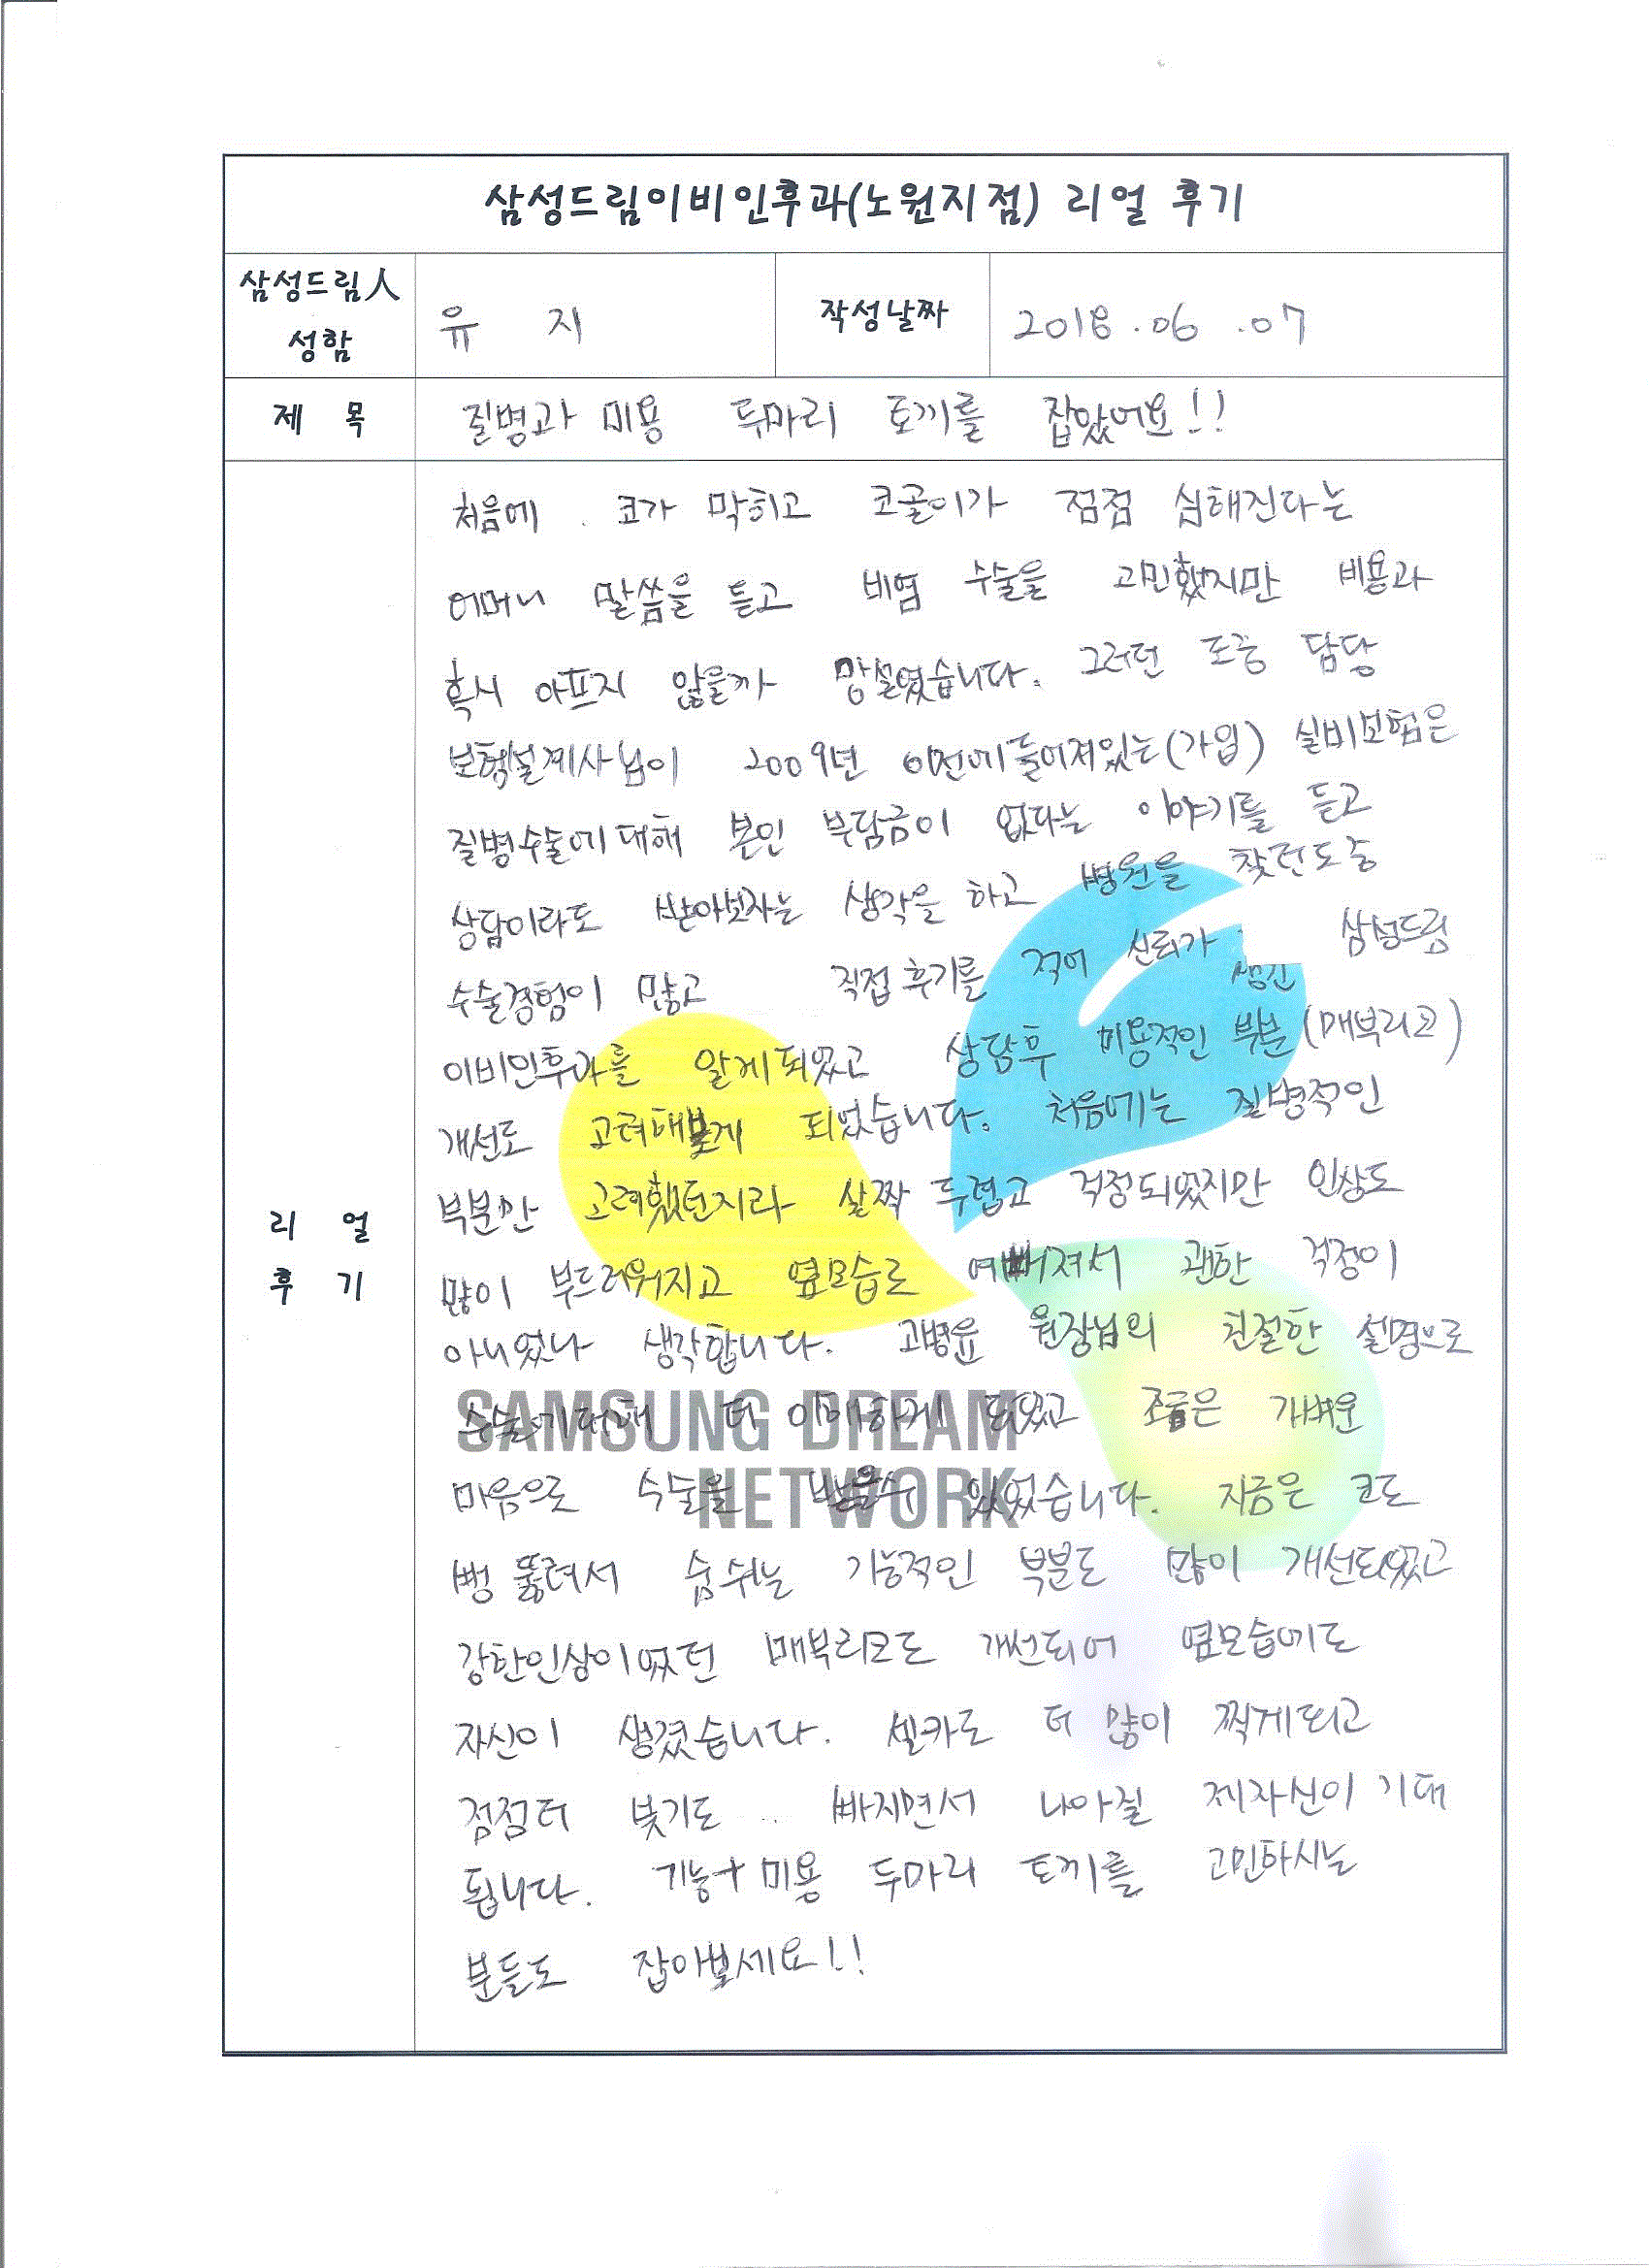 삼성드림이비인후과(노원지점) 리얼 후기
삼성드림人
성함
유 지
작성날짜
2018.06.07
제 목
질병과 미용 두마리 토끼를 잡았어요!!
리 얼
후 기
처음에 코가 막히고 코골이가 점점 심해진다는
어머니 말씀을 듣고 비염 수술을 고민했지만 비용과
혹시 아프지 않을까 망설였습니다. 그러던 도중 담당
보험설계사님이 2009년 이전에 들어져있는(가입) 실비보험은
질병수술에 대해 본인 부담금이 없다는 이야기를 듣고
상담이라도 받아보자는 생각을 하고 병원을 찾던도중
수술경험이 많고 직접 후기를 적어 신뢰가 생긴 삼성드림
이비인후과를 알게되었고 상담후 미용적인 부분(매부리코)
개선도 고려해보게 되었습니다. 처음에는 질병적인
부분만 고려했던지라 살짝 두렵고 걱정되었지만 인상도
많이 부드러워지고 옆모습도 예뻐져서 괜한 걱정이
아니었나 생각합니다. 고병윤 원장님의 친절한 설명으로
수술에대해 더 이해하게 되었고 조금은 가벼운
마음으로 수술을 받을수 있었습니다. 지금은 코도
뻥 뚫려서 숨쉬는 기능적인 부분도 많이 개선되었고
강한인상이었던 매부리코도 개선되어 옆모습에도
자신이 생겼습니다. 셀카도 더 많이 찍게되고
점점더 붓기도 빠지면서 나아질 제자신이 기대
됩니다. 기능+미용 두마리 토끼를 고민하시는
분들도 잡아보세요!!
SAMSUNG DREAM
NETWORK